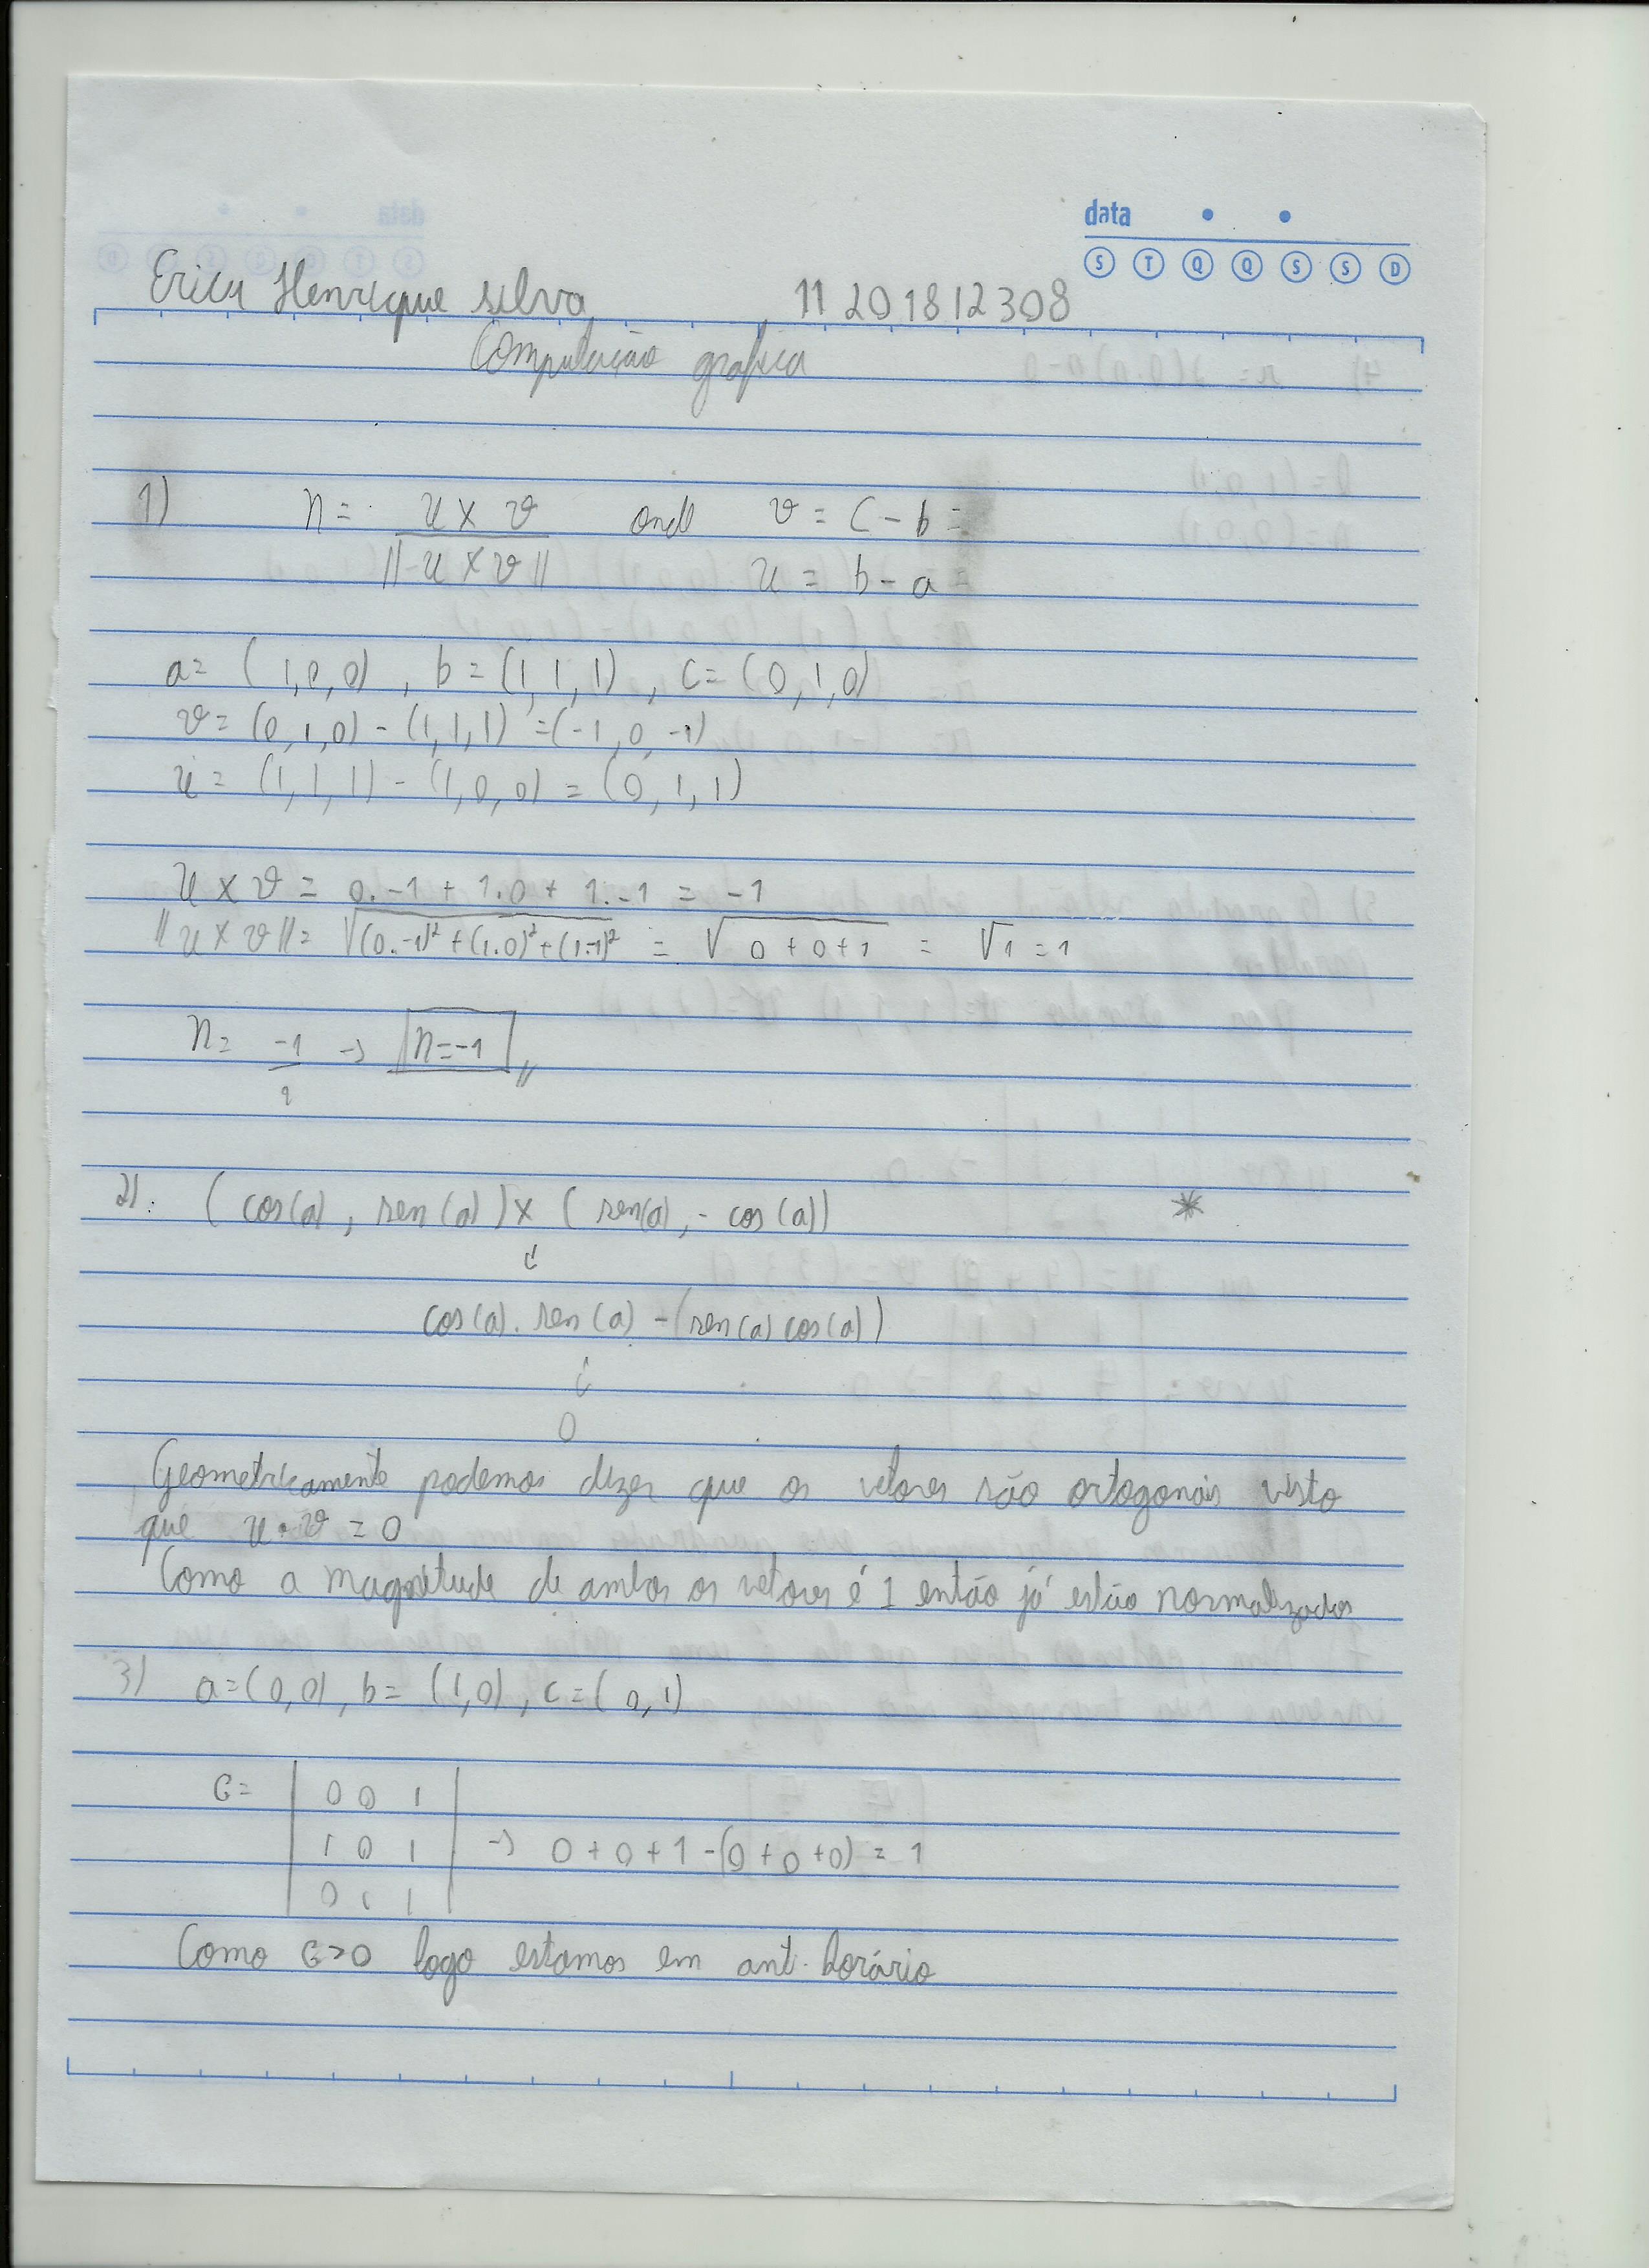 data
S T Q Q S S D
Erick Henrique Silva 11 201812308
Computação gráfica
1) n = u × v onde v = c - b =
||u × v|| u = b - a =
a = (1,0,0), b = (1,1,1), c = (0,1,0)
v = (0,1,0) - (1,1,1) = (-1,0,-1)
u = (1,1,1) - (1,0,0) = (0,1,1)
u × v = 0.-1 + 1.0 + 1.-1 = -1
||u × v|| = √(0.-1)² + (1.0)² + (1.-1)² = √0+0+1 = √1 = 1
n = -1 → n=-1
1
2) (cos(a), sen(a)) × (sen(a), - cos(a)) *
↓
cos(a). sen(a) - (sen(a) cos(a))
↓
0
Geometricamente podemos dizer que os vetores são ortogonais visto
que u • v = 0
Como a magnitude de ambos os vetores é 1 então já estão normalizados
3) a=(0,0), b= (1,0), c=(0,1)
C= | 0 0 1 |
| 1 0 1 | → 0+0+1-(0+0+0) = 1
| 0 1 1 |
Como C>0 logo estamos em anti-horário